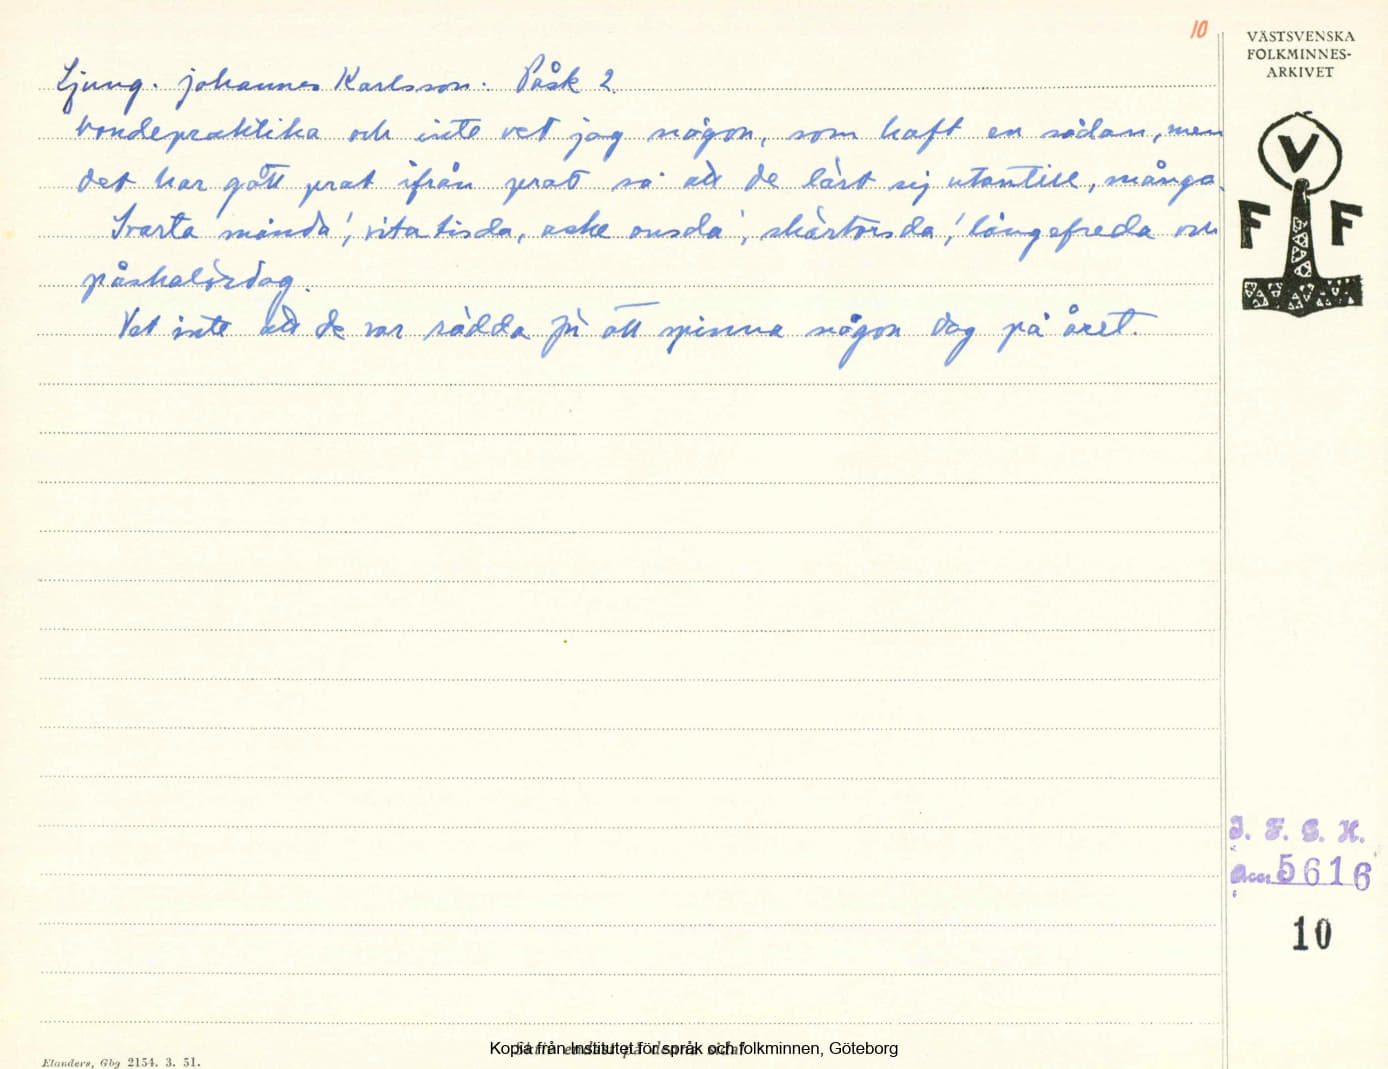 10
VÄSTSVENSKA
FOLKMINNES-
ARKIVET
Ljung. Johannes Karlsson. Påsk 2.
bondepraktika och inte vet jag någon, som haft en sådan, men
det har gått prat ifrån prat så att de lärt sig utantill, många.
Svarta månda', vita tisda, aske onsda', skärtorsda', långefreda och
påskalördag.
Vet inte att de var rädda för att spinna någon dag på året.
V
F F
I. F. G. H.
Acc. 5616
10
Skriv endast på denna sida!
Kopia från Institutet för språk och folkminnen, Göteborg
Elanders, Gbg 2154. 3. 51.